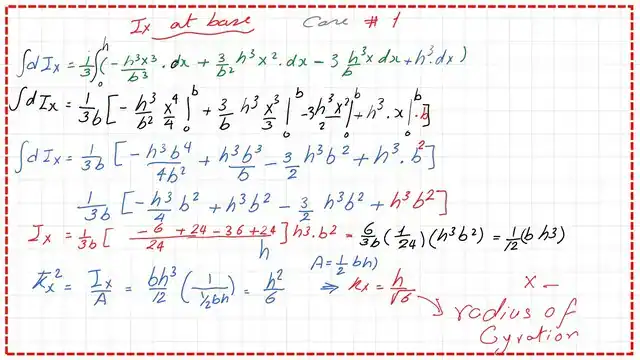 Ix at base Case # 1
∫dIx = 1/3 ∫₀ʰ (-h³x³/b³ . dx + 3/b² h³x² . dx - 3 h³/b x dx + h³. dx)
∫dIx = 1/3b [-h³/b² x⁴/4 |₀ᵇ + 3/b h³ x³/3 |₀ᵇ - 3h³x²/2 |₀ᵇ + h³ . x |₀ᵇ . b]
∫dIx = 1/3b [-h³b⁴/4b² + h³b³/b - 3/2 h³b² + h³. b²]
1/3b [-h³/4 b² + h³b² - 3/2 h³b² + h³b²]
Ix = 1/3b [ -6 + 24 - 36 + 24/24 ] h3. b² = 6/3b (1/24) (h³b²) = 1/12 (b h3)
h
A = 1/2 bh)
Kx² = Ix/A = bh³/12 (1/½bh) = h²/6 ⇒ Kx = h/√6
x -
radius of
Gyration